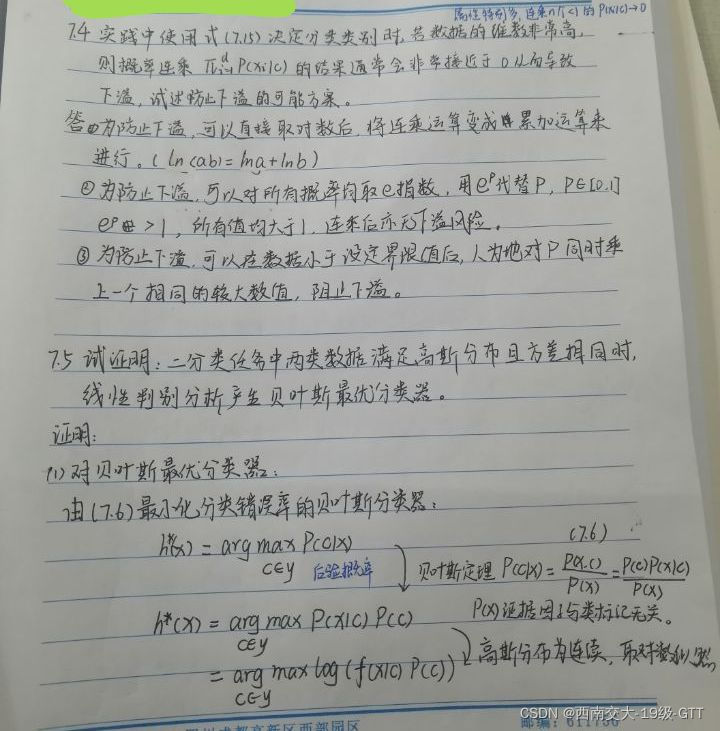 属性特别多,连乘
的P(x|c)→0
7.4 实践中使用式(7.15)决定分类类别时,若数据的维数非常高,
则概率连乘 ∏ᵈᵢ₌₁ P(xi|c) 的结果通常会非常接近于0从而导致
下溢,试述防止下溢的可能方案。
答:①为防止下溢,可以直接取对数后,将连乘运算变成累加运算来
进行。(ln(ab)=lna+lnb)
②为防止下溢,可以对所有概率均取e指数,用eᵖ代替P,P∈[0,1]
eᵖ >1,所有值均大于1,连乘后亦无下溢风险。
③为防止下溢,可以在数据小于设定界限值后,人为地对P同时乘
上一个相同的较大数值,阻止下溢。
7.5 试证明:二分类任务中两类数据满足高斯分布且方差相同时,
线性判别分析产生贝叶斯最优分类器。
证明:
(1)对贝叶斯最优分类器:
由(7.6)最小化分类错误率的贝叶斯分类器:
h*(x) = arg max P(c|x) (7.6)
c∈y 后验概率
贝叶斯定理 P(c|x)=P(x,c)/P(x)=P(c)P(x|c)/P(x)
P(x)证据因子与类标记无关。
h*(x) = arg max P(x|c) P(c)
c∈y
= arg max log(f(x|c) P(c))
c∈y
高斯分布为连续,取对数似然
CSDN @西南交大-19级-GTT
四川成都高新区西部园区
邮编:611756